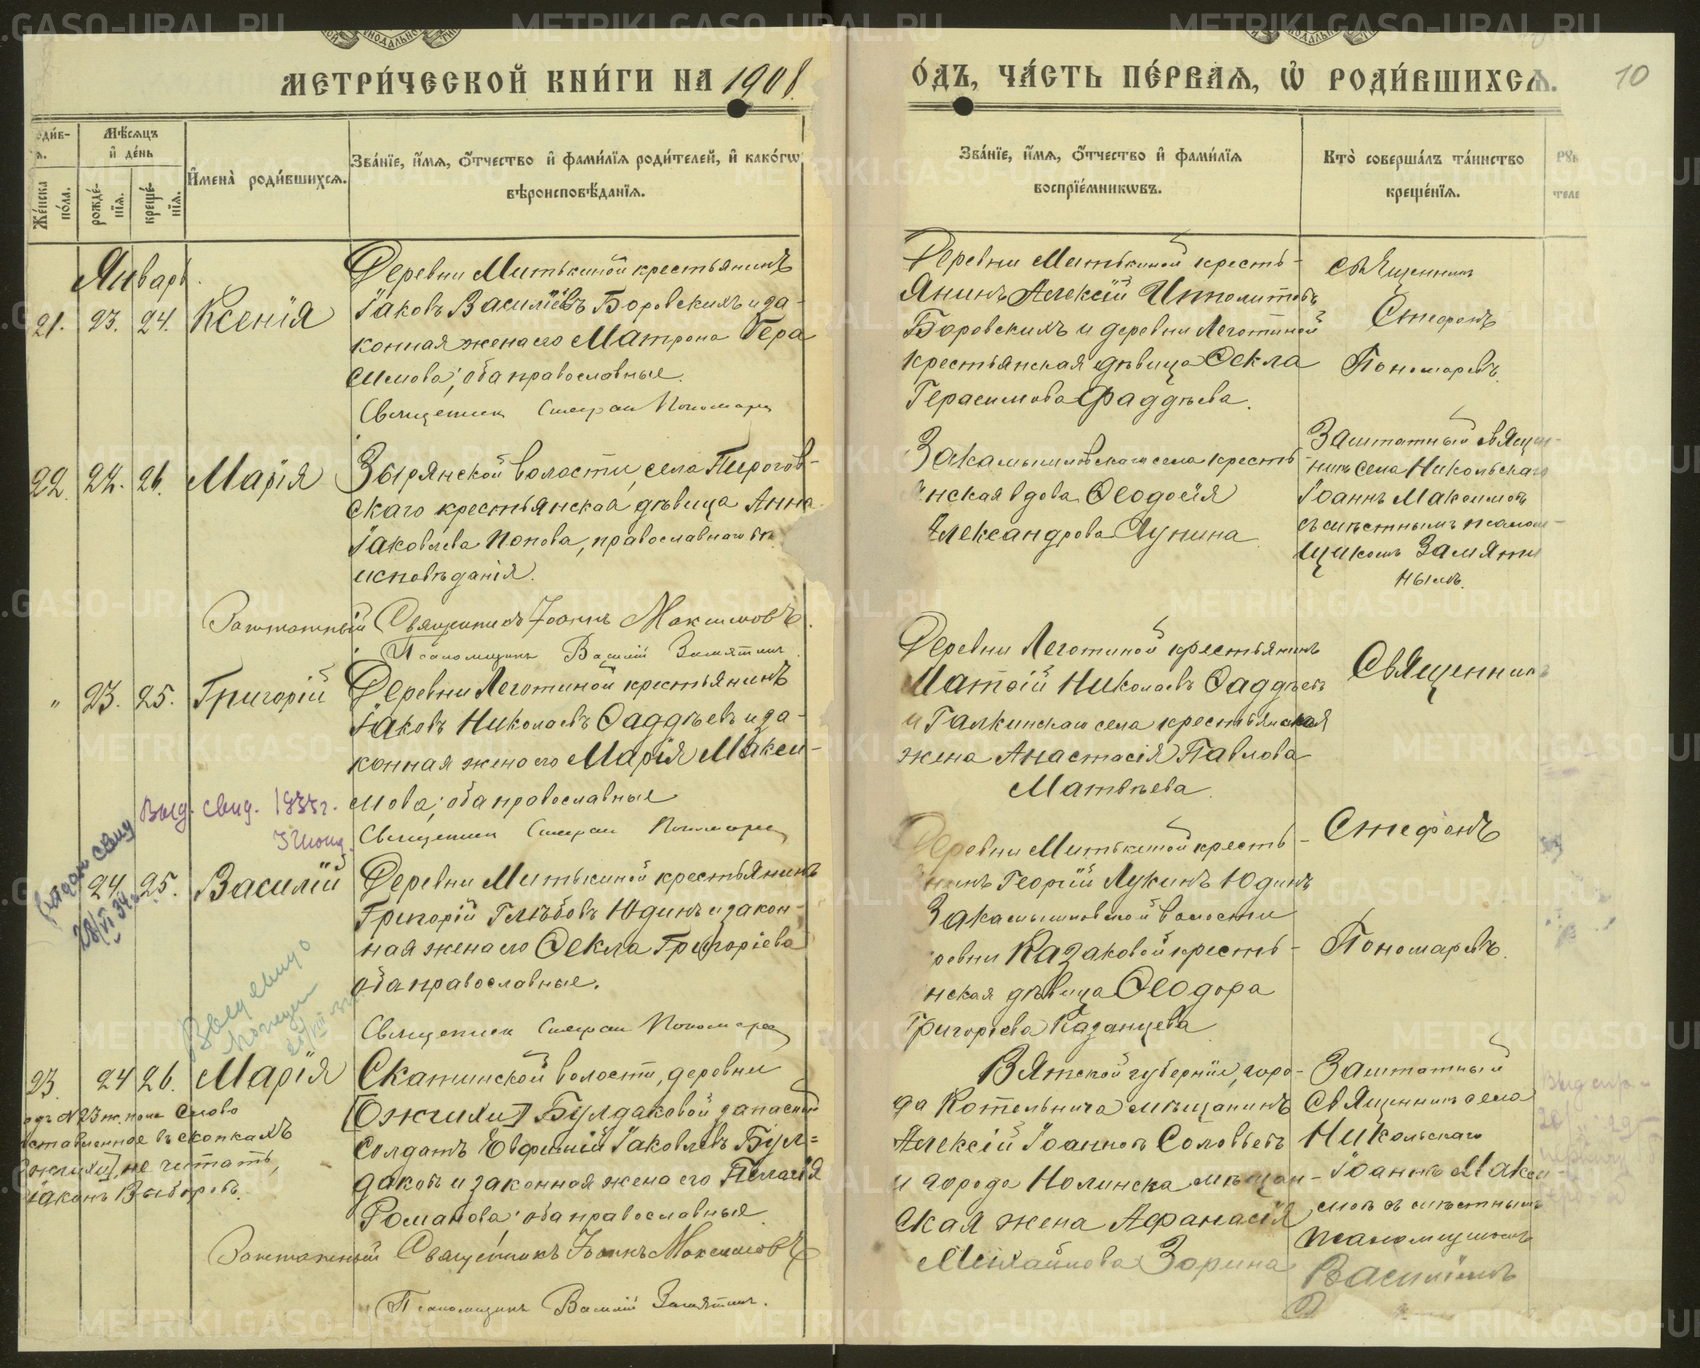 МЕТРИ́ЧЕСКОЙ КНИ́ГИ НА 1908.
О́ДЪ, ЧА́СТЬ ПЕ́РВАѦ, Ѡ҆ РОДИ́ВШИХСѦ.
10
Мѣ́сѧцъ и҆ де́нь
Же́нска по́ла.
рожде́нїѧ.
креще́нїѧ.
И҆мена̀ роди́вшихсѧ.
Зва́нїе, и҆́мѧ, ѻ҆́тчество и҆ фами́лїѧ роди́телей, и҆ како́гѡ
вѣроисповѣ́данїѧ.
Зва́нїе, и҆́мѧ, ѻ҆́тчество и҆ фами́лїѧ
воспрїе́мникѡвъ.
Кто̀ соверша́лъ та́инство
креще́нїѧ.
Январь.
21. 23. 24. Ксенія
Деревни Митькиной крестьянинъ
Іаковъ Василіевъ Боровскихъ и за-
конная жена его Матрона Гера
симова; оба православные.
Священник Стефан Пономарев
Деревни Митькиной кресть-
янинъ Алексій Ипполитовъ
Боровскихъ и деревни Леготиной
крестьянская дѣвица Ѳекла
Герасимова Фаддѣева.
Священникъ
Стефанъ
Пономаревъ.
22. 22. 26. Марія
Зырянской волости, села Пирогов-
скаго крестьянская дѣвица Анна
Іаковлева Попова, православнаго вѣ
исповѣданія.
Заштатный Священникъ Іоаннъ Максимовъ.
Псаломщикъ Василій Замятнин.
Закамышловскаго села кресть
янская вдова Ѳеодосія
Александрова Лунина
Заштатный священ-
никъ села Никольскаго
Іоаннъ Максимовъ
съ мѣстнымъ псалом-
щикомъ Замятни
нымъ.
" 23. 25. Григорій
Деревни Леготиной крестьянинъ
Іаковъ Николаевъ Ѳаддѣевъ и за-
конная жена его Марія Макси-
мова; оба православные
Священник Стефан Пономарев
Выд. свид. 1933г.
Деревни Леготиной крестьянинъ
Матѳій Николаевъ Ѳаддѣевъ
и Галкинскаго села крестьянская
жена Анастасія Павлова
Матвѣева.
Священникъ
Стефанъ
Пономаревъ.
24 25. Василій
Деревни Митькиной крестьянинъ
Григорій Глѣбовъ Юдинъ и закон-
ная жена его Ѳекла Григоріева
оба православные.
Священник Стефан Пономарев
Деревни Митькиной кресть-
янинъ Георгій Лукинъ Юдинъ
Закамышловской волости
ревни Казаковой кресть-
нская дѣвица Ѳеодора
Григоріева Казанцева
23. 24 26. Марія
Скатинской волости, деревни
[Ожгихи] Булдаковой запасный
солдатъ Евфимій Іаковлевъ Бул=
даковъ и законная жена его Пелагія
Романова; оба православные
Заштатный Священникъ Іоаннъ Максимовъ
Псаломщикъ Василій Замятнин.
слово
ставленное въ скобкахъ
Ожгихи], не читать,
Вятской губерніи, горо-
да Котельнича мѣщанинъ
Алексій Іоанновъ Соловьевъ
и города Нолинска мѣщан-
ская жена Аѳанасія
Михайлова Зорина
Заштатный
Священникъ села
Никольскаго
Іоаннъ Макси-
мовъ съ мѣстнымъ
псаломщикомъ
Василіемъ